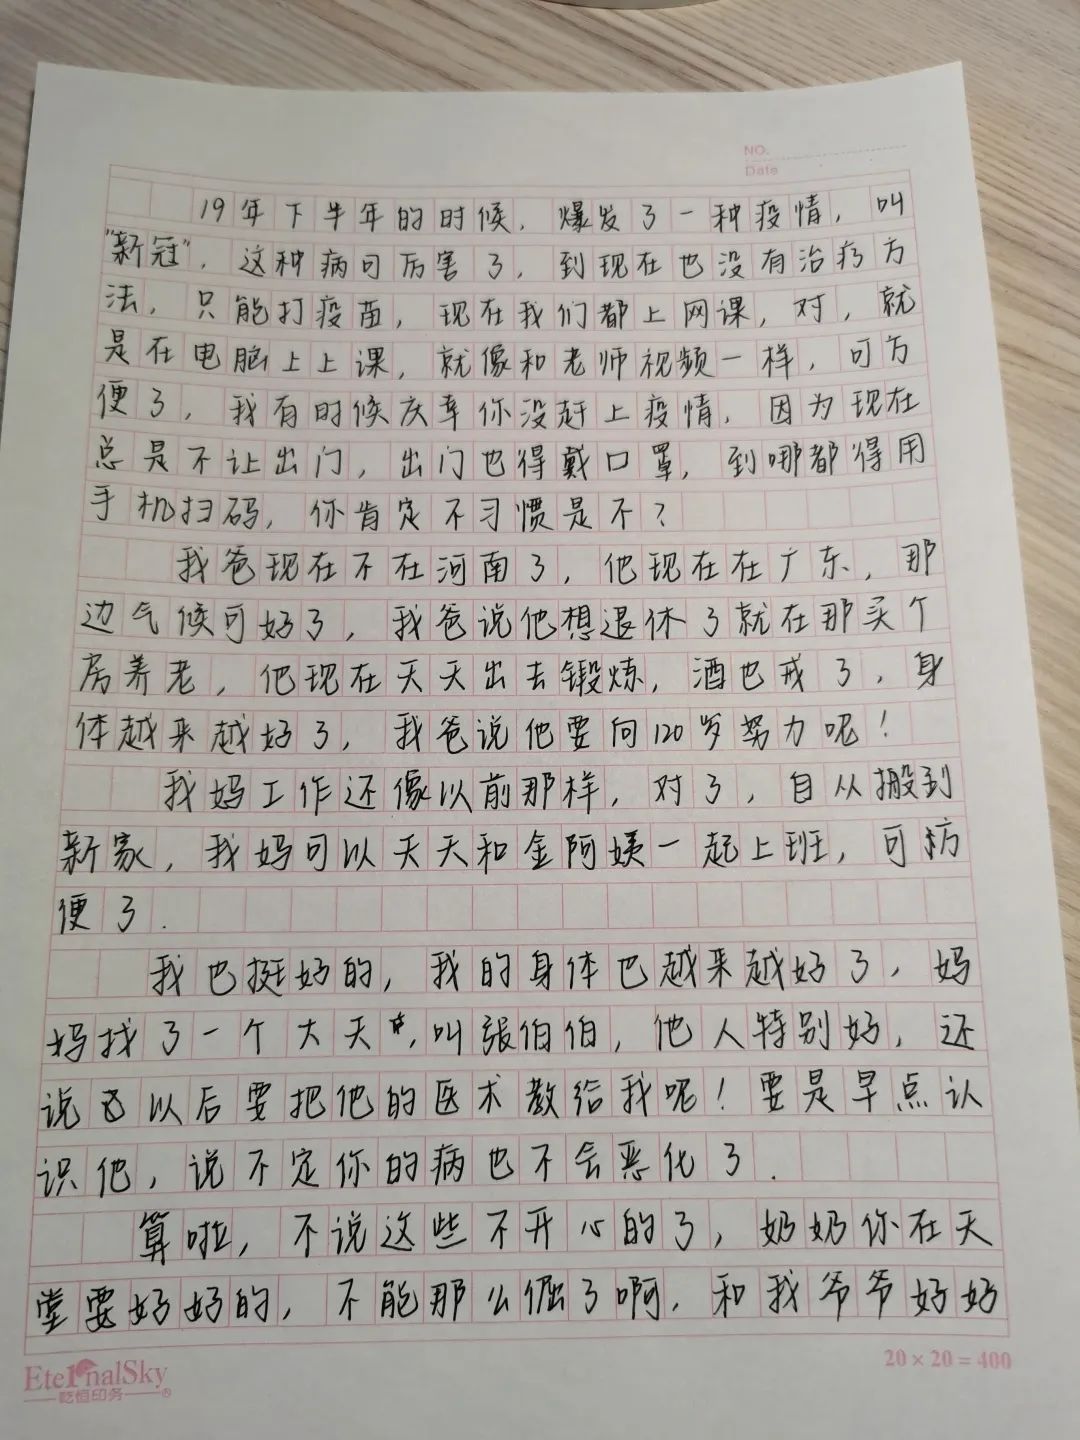 NO.
Date
19年下半年的时候,爆发了一种疫情,叫
"新冠",这种病可厉害了,到现在也没有治疗方
法,只能打疫苗,现在我们都上网课,对,就
是在电脑上上课,就像和老师视频一样,可方
便了,我有时候庆幸你没赶上疫情,因为现在
总是不让出门,出门也得戴口罩,到哪都得用
手机扫码,你肯定不习惯是不?
我爸现在不在河南了,他现在在广东,那
边气候可好了,我爸说他想退休了就在那买个
房养老,他现在天天出去锻炼,酒也戒了,身
体越来越好了,我爸说他要向120岁努力呢!
我妈工作还像以前那样,对了,自从搬到
新家,我妈可以天天和金阿姨一起上班,可方
便了.
我也挺好的,我的身体也越来越好了,妈
妈找了一个大夫,叫张伯伯,他人特别好,还
说以后要把他的医术教给我呢!要是早点认
识他,说不定你的病也不会恶化了.
算啦,不说这些不开心的了,奶奶你在天
堂要好好的,不能那么倔了啊,和我爷爷好好
EternalSky
乾恒印务®
20×20=400